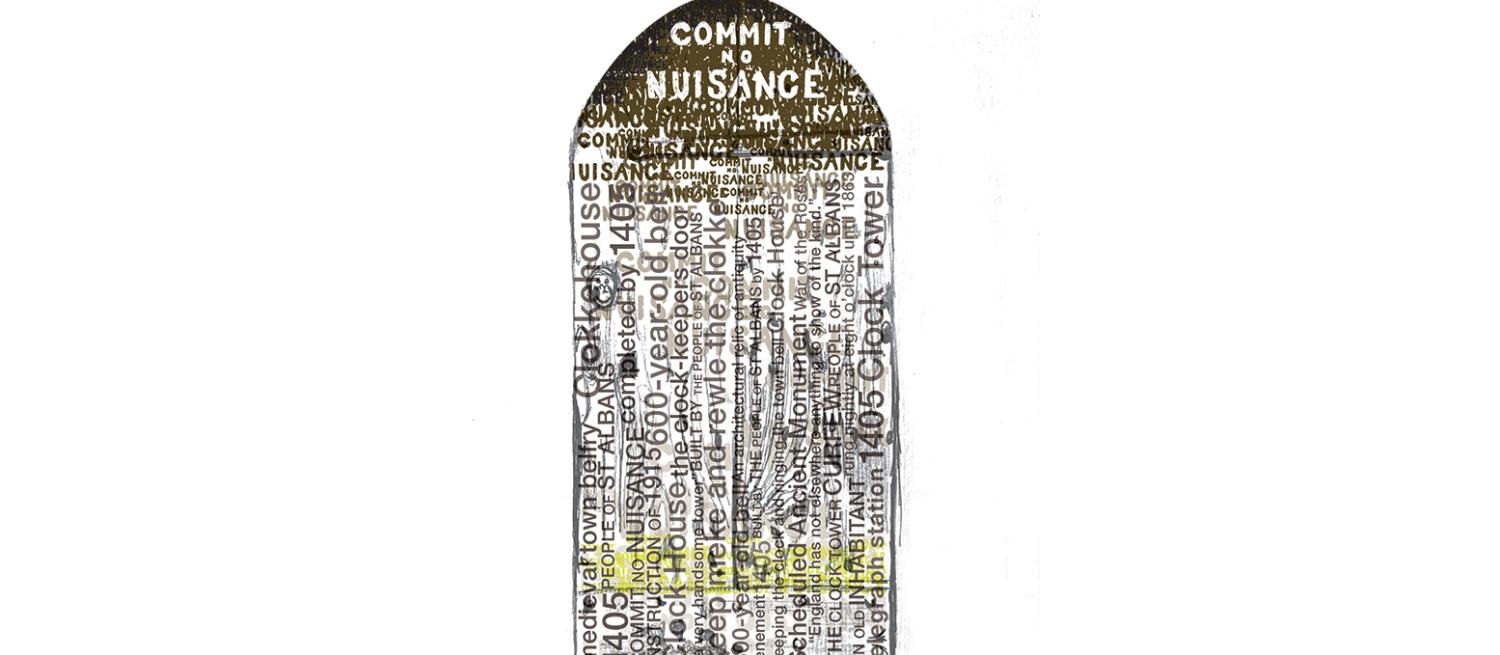 COMMIT
NO
NUISANCE
COMMIT
NUISANCE
NUISANCE
NUISANCE
COMMIT
NO
NUISANCE
COMMIT
NO
NUISANCE
COMMIT
NO
NUISANCE
medieval town belfry Clokkehouse
1405 PEOPLE OF ST ALBANS
COMMIT NO NUISANCE completed by 1405
NSTRUCTION OF 1915 600-year-old bell
lock House the clock-keepers door
a very handsome tower" BUILT BY THE PEOPLE OF ST ALBANS
eep meke and rewle the clokke
00-year-old bell "An architectural relic of antiquity
enement 1405 BUILT BY THE PEOPLE OF ST ALBANS by 1405
eeping the clock and ringing the town bell Clock House
scheduled Ancient Monument War of the Roses
"England has not elsewhere anything to show of the kind."
THE CLOCK TOWER CURFEW PEOPLE OF ST ALBANS
N OLD INHABITANT rung nightly at eight o'clock until 1863
elegraph station 1405 Clock Tower